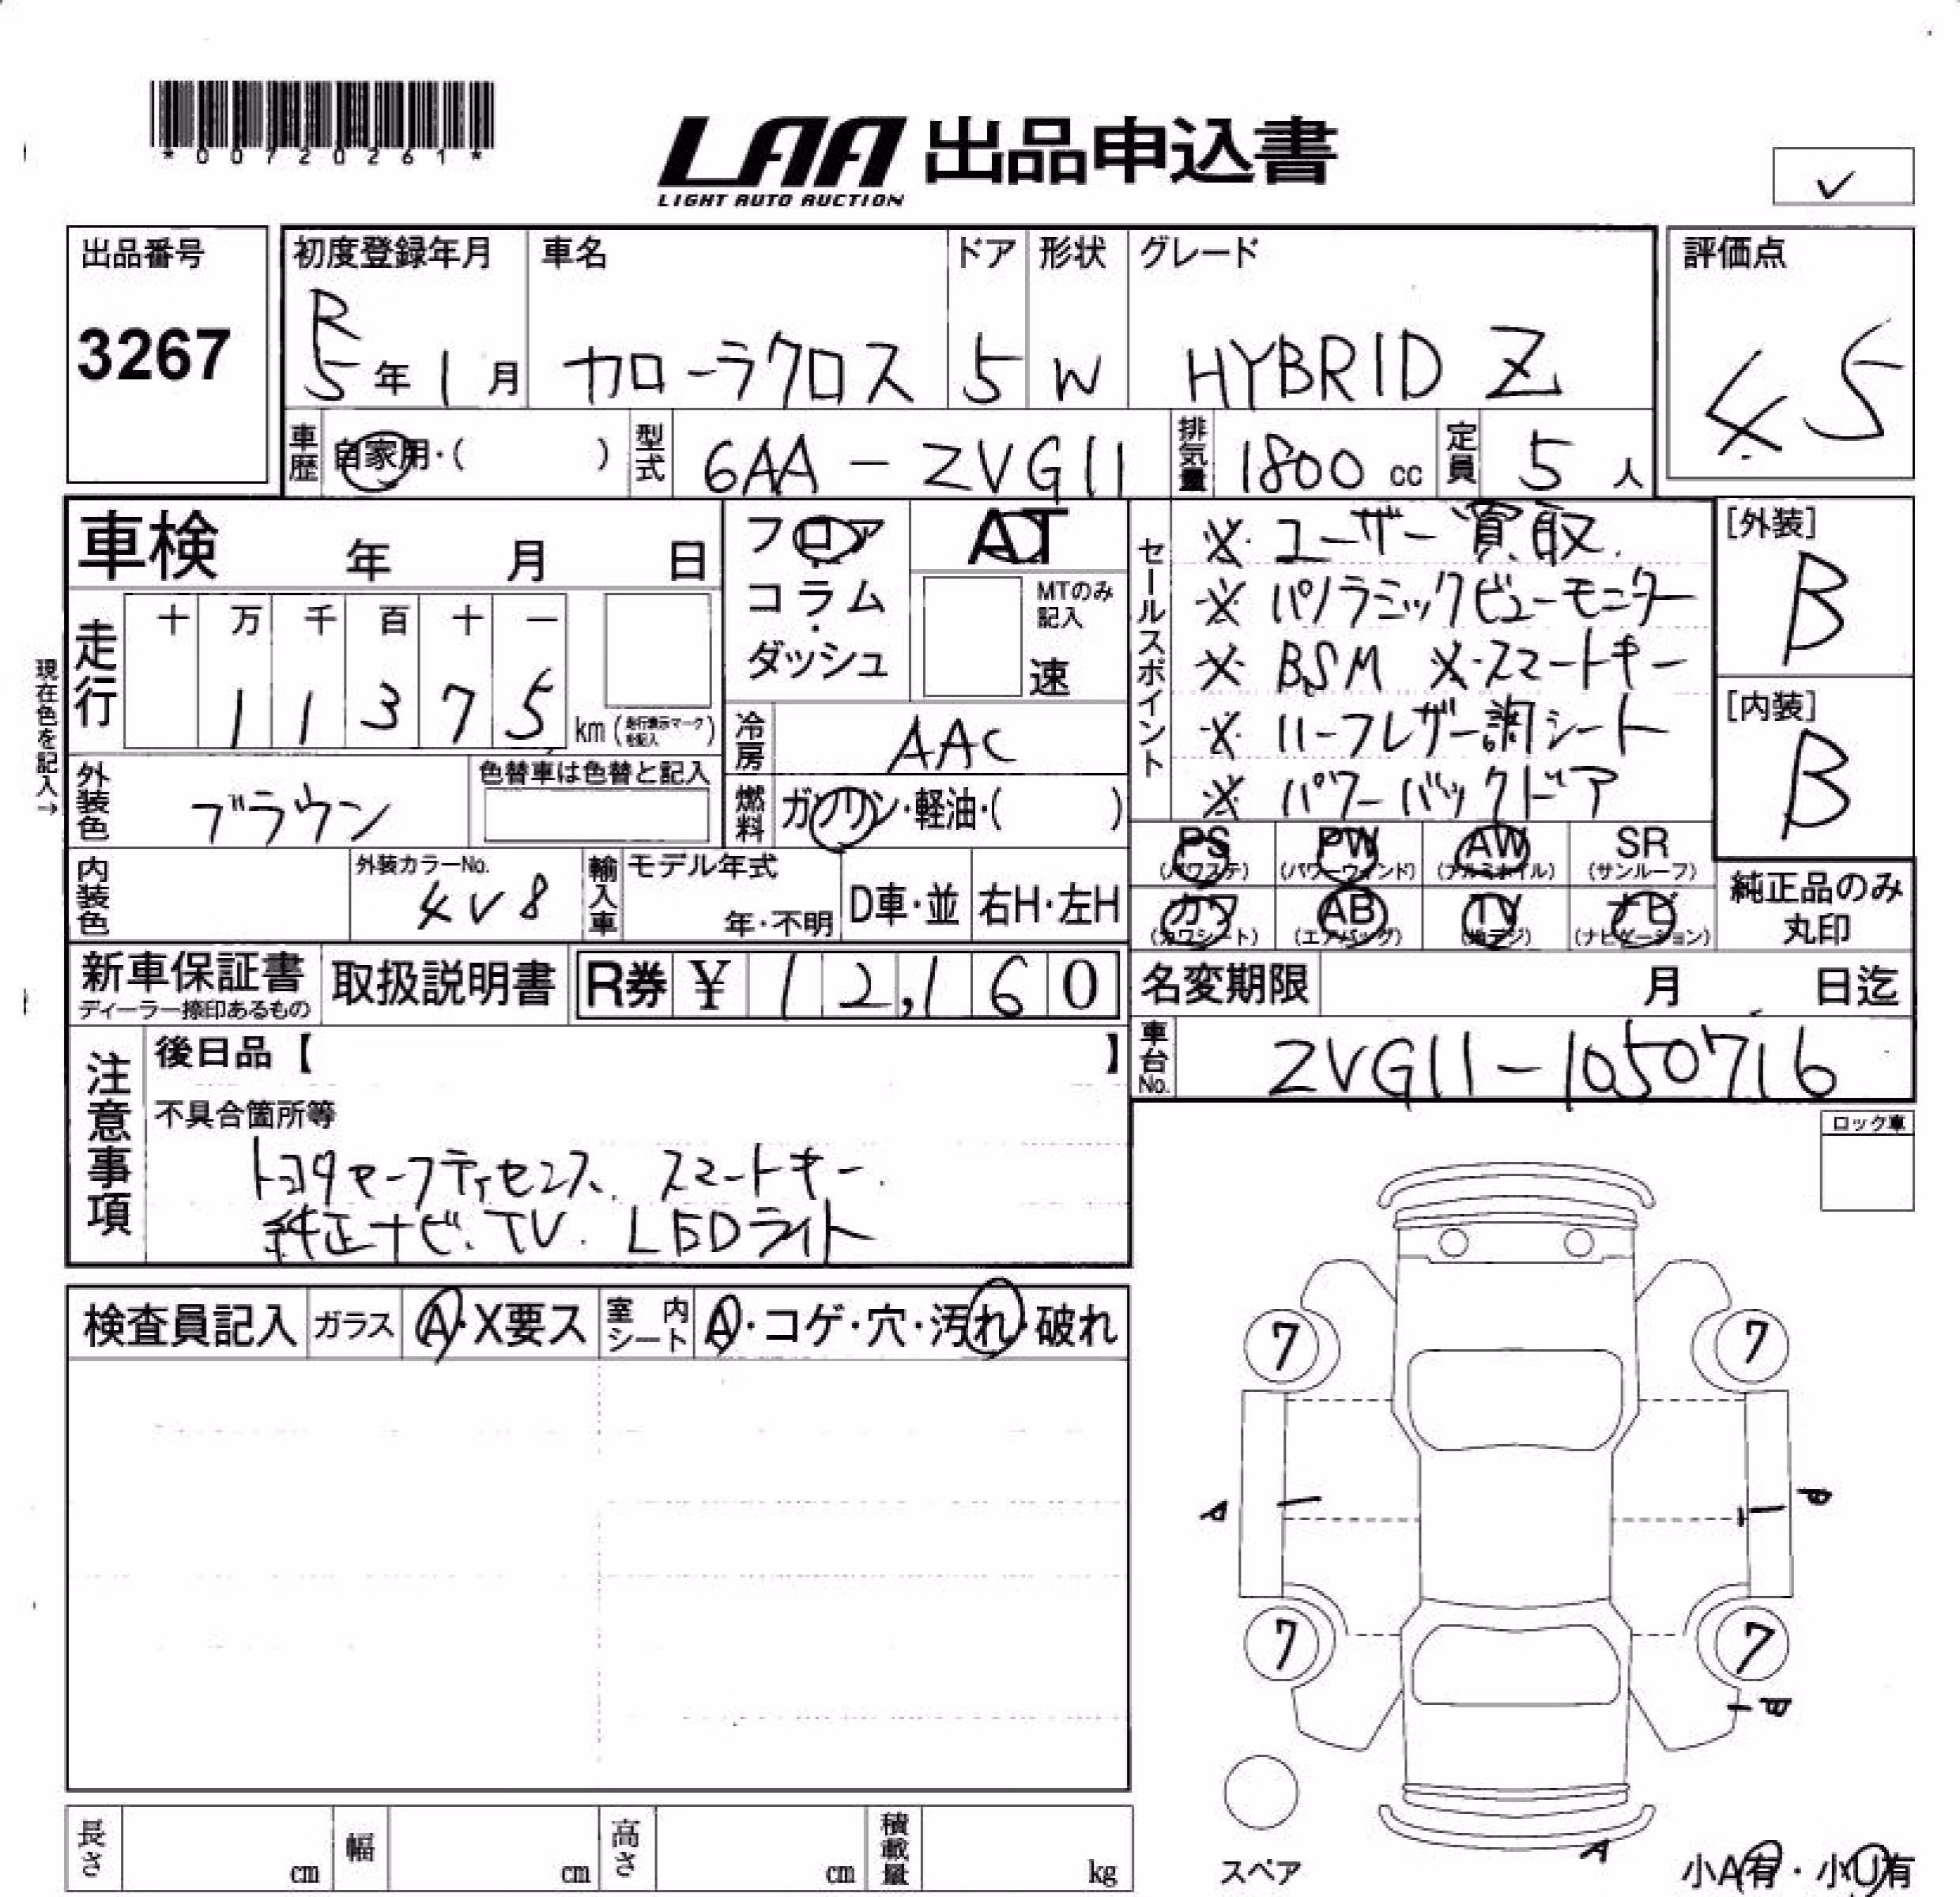 *00720261*
LAA 出品申込書
LIGHT AUTO AUCTION
✓
出品番号
3267
初度登録年月
R
5年1月
車名
カローラクロス
ドア
5
形状
W
グレード
HYBRID Z
評価点
4 5
車歴
自家用・( )
型式
6AA - ZVG11
排気量
1800 cc
定員
5 人
車検 年 月 日
フロア
コラム
・
ダッシュ
AT
MTのみ
記入
速
セールスポイント
※ ユーザー買取
※ パノラミックビューモニター
※ BSM ※スマートキー
※ ハーフレザー調シート
※ パワーバックドア
[外装]
B
[内装]
B
現在色を記入→
走行
十 万 千 百 十 一
1 1 3 7 5
km (走行表示マークを記入)
冷房
AAC
外装色
ブラウン
色替車は色替と記入
燃料
ガソリン・軽油・( )
PS PW AW SR
(パワステ) (パワーウィンド) (アルミホイル) (サンルーフ)
カワ AB TV ナビ
(カワシート) (エアバッグ) (地デジ) (ナビゲーション)
純正品のみ
丸印
内装色
外装カラーNo.
4V8
輸入車
モデル年式
年・不明
D車・並
右H・左H
新車保証書
ディーラー捺印あるもの
取扱説明書
R券 ¥ 12,160
名変期限 月 日迄
車台No.
ZVG11-1050716
注意事項
後日品【 】
不具合箇所等
トヨタセーフティセンス. スマートキー.
純正ナビ. TV. LEDライト
ロック車
検査員記入
ガラス
A・X要ス
室内シート
A・コゲ・穴・汚れ・破れ
7 7
A
7 7
A
スペア
小A有・小U有
長さ cm
幅 cm
高さ cm
積載量 kg